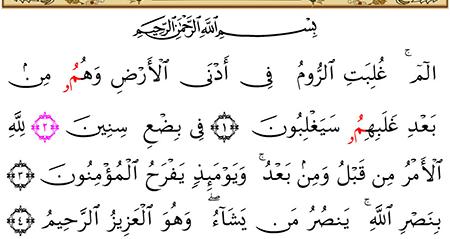 بِسْمِ اللَّهِ الرَّحْمَٰنِ الرَّحِيمِ
الٓمٓ ۚ غُلِبَتِ الرُّومُ فِي أَدْنَى الْأَرْضِ وَهُمُۥ مِنۢ
بَعْدِ غَلَبِهِمُۥ سَيَغْلِبُونَ ﴿١﴾ فِي بِضْعِ سِنِينَ ﴿٢﴾ لِلَّهِ
الْأَمْرُ مِن قَبْلُ وَمِنۢ بَعْدُ ۚ وَيَوْمَئِذٍ يَفْرَحُ الْمُؤْمِنُونَ ﴿٣﴾
بِنَصْرِ اللَّهِ ۚ يَنصُرُ مَن يَشَآءُ ۖ وَهُوَ الْعَزِيزُ الرَّحِيمُ ﴿٤﴾